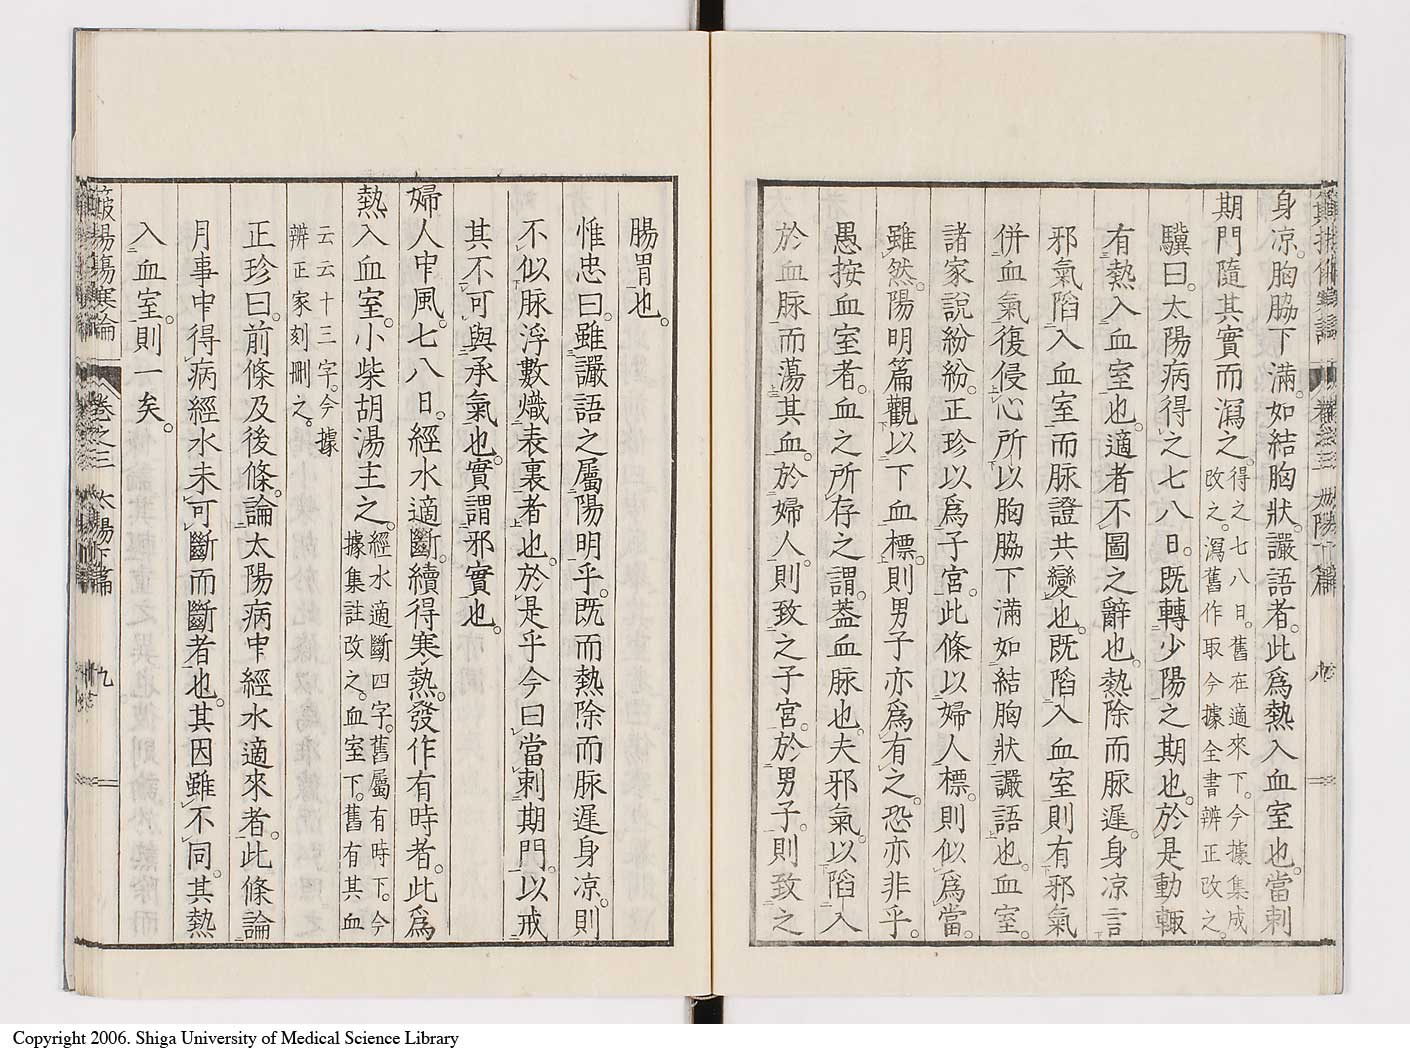 身凉。胸脇下滿。如結胸狀。讝語者。此爲熱入血室也。當刺
期門隨其實而瀉之。得之七八日。舊在適來下。今據集成
改之。瀉舊作取今據全書辨正改之。
驥曰。太陽病得之七八日。既轉少陽之期也。於是動輙
有熱入血室也。適者不圖之辭也。熱除而脈遲。身凉言
邪氣陷入血室而脈證共變也。既陷入血室則有邪氣
併血氣復侵心所以胸脇下滿如結胸狀讝語也。血室。
諸家說紛紛。正珍以爲子宮。此條以婦人標。則似爲當。
雖然。陽明篇觀以下血標。則男子亦爲有之。恐亦非乎。
愚按血室者。血之所存之謂。葢血脈也。夫邪氣。以陷入
於血脈而蕩其血。於婦人。則致之子宮。於男子。則致之
腸胃也。
惟忠曰。雖讝語之屬陽明乎。既而熱除而脈遲身凉。則
不似脈浮數熾表裏者也。於是乎今曰當刺期門。以戒
其不可與承氣也。實謂邪實也。
婦人中風。七八日。經水適斷。續得寒熱。發作有時者。此爲
熱入血室。小柴胡湯主之。經水適斷四字。舊屬有時下。今
據集註改之。血室下。舊有其血
云云十三字。今據
辨正家刻刪之。
正珍曰。前條及後條。論太陽病中經水適來者。此條論
月事中得病經水未可斷而斷者也。其因雖不同。其熱
入血室。則一矣。
傷寒論 卷之三 太陽下篇 九